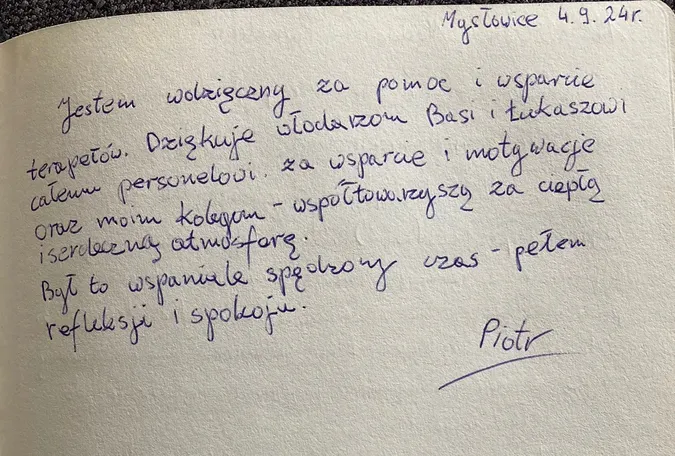 Mysłowice 4.9.24r.
Jestem wdzięczny za pomoc i wsparcie
terapełów. Dziękuje włodarzom Basi i Łukaszowi
całemu personelowi. za wsparcie i motywacje
oraz moim kolegom - współtowarzyszą za ciepłą
i serdeczną atmosferę.
Był to wspaniale spędzony czas - pełem
refleksji i spokoju.
Piotr